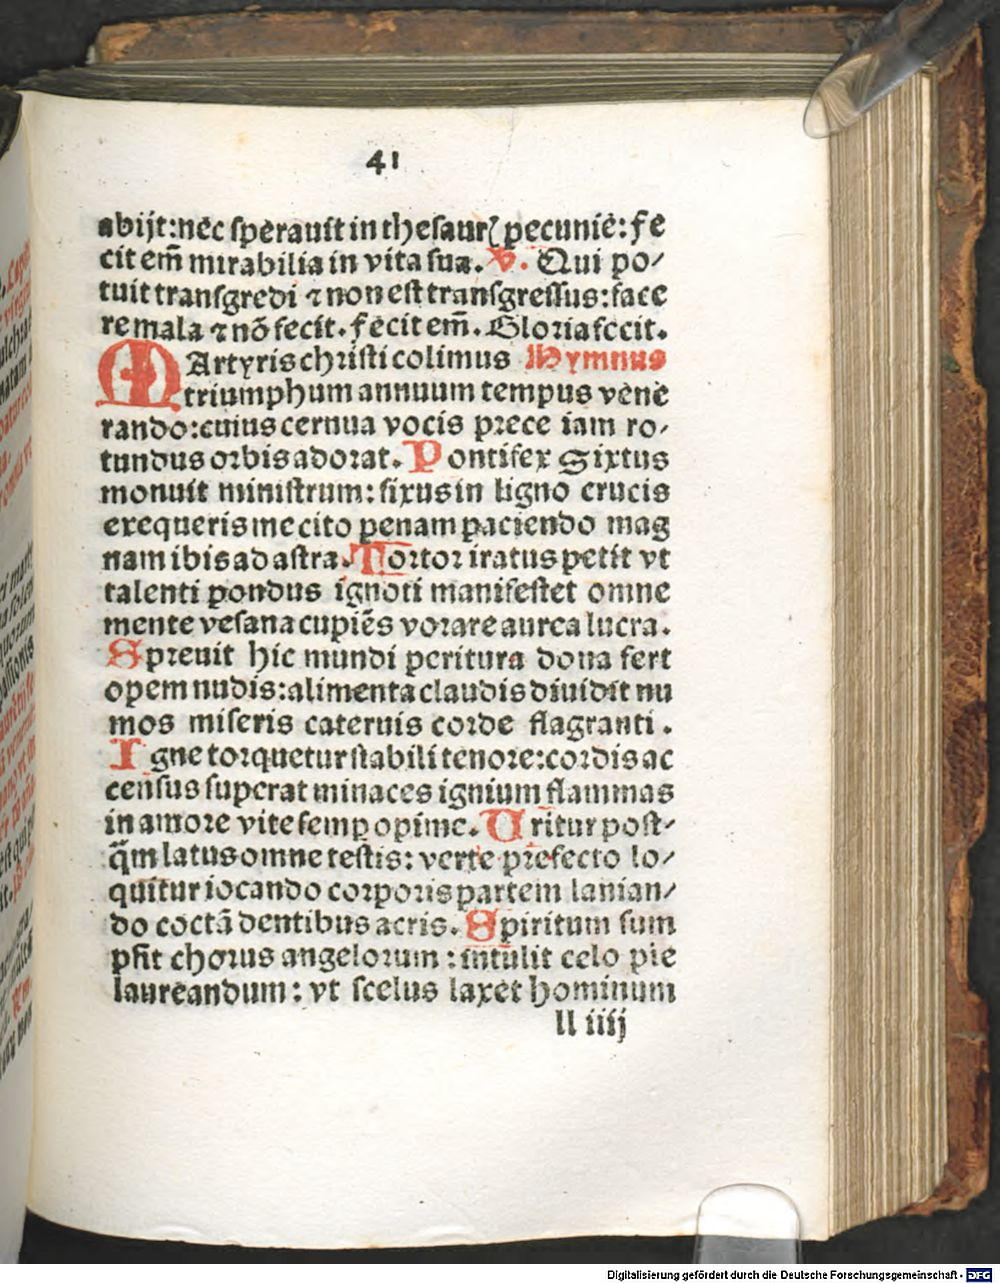 41
abijt: nec sperauit in thesaurꝭ pecunie: fe
cit em̄ mirabilia in vita sua. V. Qui po⸗
tuit transgredi ⁊ non est transgressus: face
re mala ⁊ nō fecit. fecit em̄. Gloria fecit.
MArtyris christi colimus Hymnus
triumphum annuum tempus vene
rando: cuius cernua vocis prece iam ro⸗
tundus orbis adorat. Pontifex Sixtus
monuit ministrum: fixus in ligno crucis
exequeris me cito penam paciendo mag
nam ibis ad astra. Tortor iratus petit vt
talenti pondus ignoti manifestet omne
mente vesana cupiēs vorare aurea lucra.
Spreuit hic mundi peritura dona fert
opem nudis: alimenta claudis diuidit nu
mos miseris cateruis corde flagranti.
Igne torquetur stabili tenore: cordis ac
census superat minaces ignium flammas
in amore vite semp opime. Uritur post⸗
q̄m latus omne testis: verte prefecto lo⸗
quitur iocando corporis partem lanian⸗
do coctā dentibus acris. Spiritum sum
psit chorus angelorum: intulit celo pie
laureandum: vt scelus laxet hominum
ll iiij
Digitalisierung gefördert durch die Deutsche Forschungsgemeinschaft - DFG